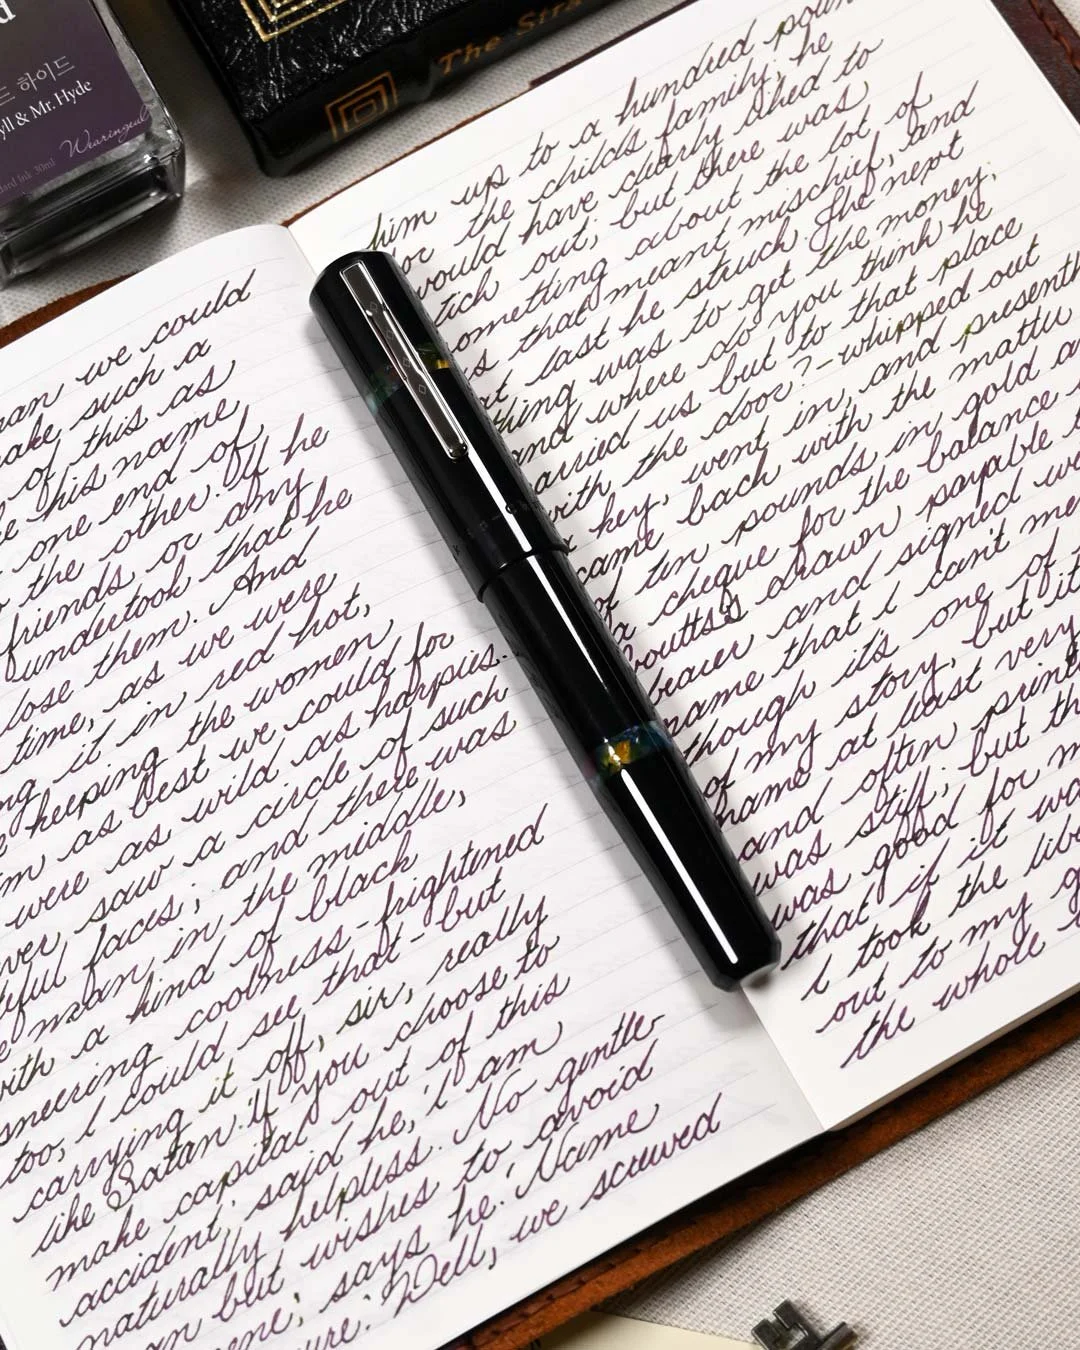 드 하이드
yll & Mr. Hyde
Wearingeul
dard Ink 30ml
The Stra
man we could
make such a
of this as
his name
one end of
the other. If he
friends or any
undertook that he
lose them. And
time, as we were
ng it in red hot,
keeping the women
m as best we could for
were as wild as harpies.
ver saw a circle of such
eful faces; and there was
e man in the middle,
with a kind of black
sneering coolness-frightened
too, i could see that-but
carrying it off, sir, really
like Satan. 'if you choose to
make capital out of this
accident,' said he, 'i am
naturally helpless. No gentle-
an but wishes to avoid
ene,' says he. 'Name
ure.' Well, we screwed
him up to a hundred poun
for the childs family; he
would have clearly liked to
stick out; but there was
something about the lot of
us that meant mischief, and
at last he struck. The next
thing was to get the money;
and where do you think he
carried us but to that place
with the door?-whipped out
a key, went in, and presently
came back with the matter
of ten pounds in gold a
a cheque for the balance
Coutts's drawn payable t
bearer and signed w
name that i can't me
though it's one of
of my story, but it
name at least very
and often print
was stiff; but th
was good for m
that if it wa
i took the libe
out to my g
the whole